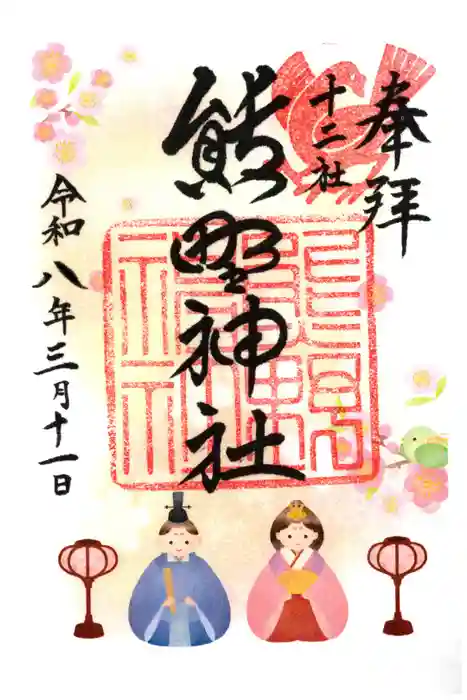 奉拝
十二社
熊野神社
令和八年三月十一日
熊野
神社